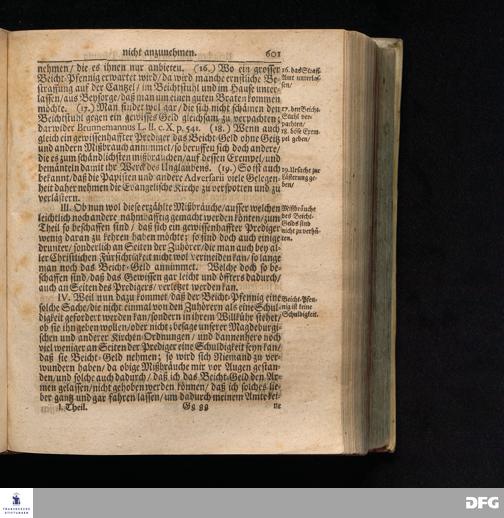 nicht anzunehmen. 601
nehmen/ die es ihnen nur anbieten. (16.) Wo ein grosser
Beicht-Pfennig erwartet wird/ da wird manche ernstliche Be-
straffung auf der Cantzel/ im Beichtstuhl und im Hause unter-
lassen/ aus Beysorge/ daß man um einen guten Braten kommen
möchte. (17.) Man findet wol gar/ die sich nicht schämen den
Beichtstuhl gegen ein gewisses Geld gleichsam zu verpachten;
darwider Brunnemannus L. II. c. X. p. 541. (18.) Wenn auch
gleich ein gewissenhaffter Prediger das Beicht-Geld ohne Geitz
und andern Mißbrauch annimmt/ so beruffen sich doch andere/
die es zum schändlichsten mißbrauchen/ auf dessen Exempel/ und
bemänteln damit ihr Werck des Unglaubens. (19.) So ist auch
bekannt/ daß die Papisten und andere Adversarii viele Gelegen-
heit daher nehmen die Evangelische Kirche zu verspotten und zu
verlästern.
16. das Straff-
Amt unterlas-
sen/
17. den Beicht-
Stuhl ver-
pachten/
18. böse Exem-
pel geben/
19. Ursache zur
Lästerung ge-
ben/
III. Ob nun wol diese erzählte Mißbräuche/ ausser welchen
leichtlich noch andere nahmhafftig gemacht werden könten/ zum
Theil so beschaffen sind/ daß sich ein gewissenhaffter Prediger
wenig daran zu kehren haben möchte; so sind doch auch einige
drunter/ sonderlich an Seiten der Zuhörer/ die man auch bey al-
ler Christlichen Fürsichtigkeit nicht wol vermeiden kan/ so lange
man noch das Beicht-Geld annimmet. Welche doch so be-
schaffen sind/ daß das Gewissen gar leicht und öffters dadurch/
auch an Seiten des Predigers/ verletzet werden kan.
Mißbräuche
des Beicht-
Gelds sind
nicht zu verhü-
ten.
IV. Weil nun dazu kommet/ daß der Beicht-Pfennig eine
solche Sache/ die nicht einmal von den Zuhörern als eine Schul-
digkeit gefordert werden kan/ sondern in ihrem Willkühr stehet/
ob sie ihn geben wollen/ oder nicht; besage unserer Magdeburgi-
schen und anderer Kirchen-Ordnungen/ und dannenhero noch
viel weniger an Seiten der Prediger eine Schuldigkeit seyn kan/
daß sie Beicht-Geld nehmen; so wird sich Niemand zu ver-
wundern haben/ da obige Mißbräuche mir vor Augen gestan-
den/ und solche auch dadurch/ daß ich das Beicht-Geld den Ar-
men gelassen/ nicht gehoben werden können/ daß ich solches lie-
ber gantz und gar fahren lassen/ um dadurch meinem Amte kei-
Beicht-Pfen-
nig ist keine
Schuldigkeit.
I. Theil. Gg gg ne
FRANCKESCHE
STIFTUNGEN
DFG